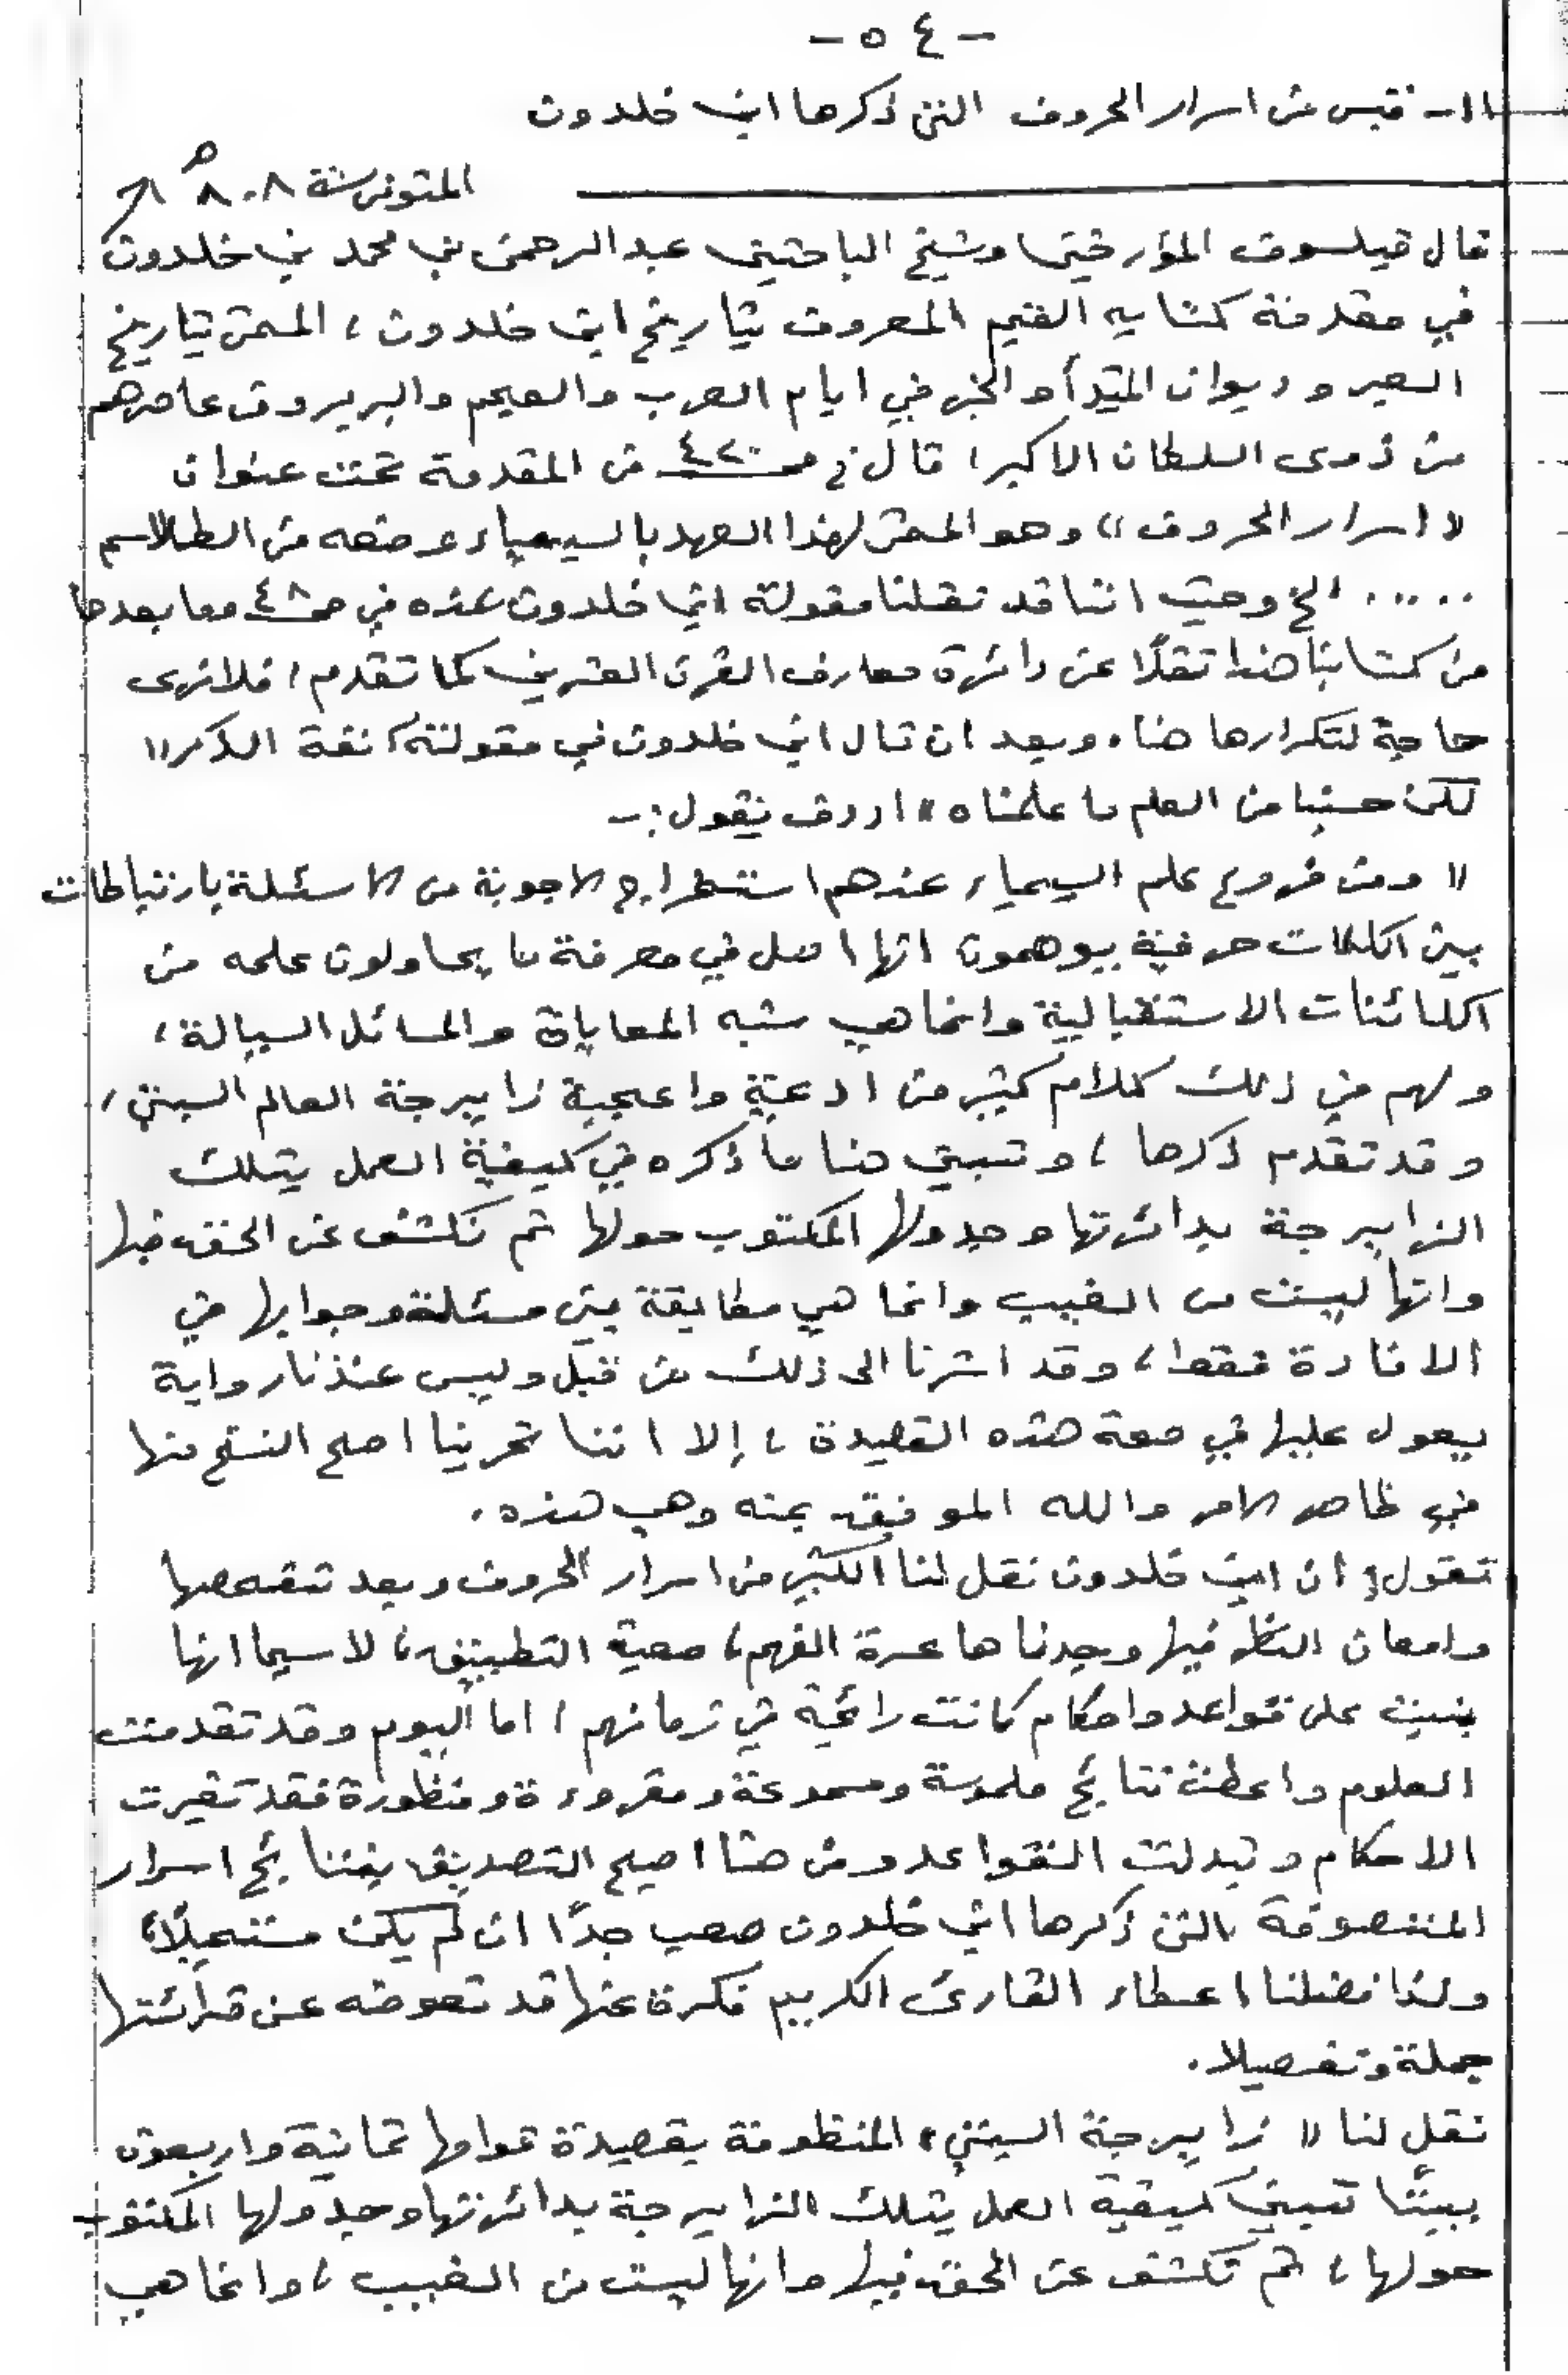 - ٥٤ -
١١- قبس من اسرار الحروف التي ذكرها ابن خلدون
المتوفى سنة ٨٠٨ هـ
قال فيلسوف المؤرخين وشيخ الباحثين عبد الرحمن بن محمد بن خلدون
في مقدمة كتابه القيم المعروف بتاريخ ابن خلدون، المسمى بتاريخ
العبر وديوان المبتدأ والخبر في ايام العرب والعجم والبربر ومن عاصرهم
من ذوى السلطان الاكبر، قال في ص ٤٢٠ من المقدمة تحت عنوان
« اسرار الحروف » وهو المسمى لهذا العهد بالسيمياء وضعه من الطلاسم
..... الخ وحيث اننا قد نقلنا مقولة ابن خلدون هذه في ص ٤٨ وما بعدها
من كتابنا هذا نقلًا عن دائرة معارف القرن العشرين كما تقدم، فلا نرى
حاجة لتكرارها هنا. وبعد ان قال ابن خلدون في مقولته آنفة الذكر «
لكن حسبنا من العلم ما علمناه » اردف يقول:-
« ومن فروع علم السيمياء عندهم استخراج الاجوبة من الاسئلة بارتباطات
بين الكلمات حرفية يوهمون انها اصل في معرفة ما يحاولون علمه من
الكائنات الاستقبالية وانما هي شبه المعاياة والمسائل السيالة،
ولهم في ذلك كلام كثير من ادعية واعجبه زايرجة العالم السبتي،
وقد تقدم ذكرها، ونبين هنا ما ذكره في كيفية العمل بتلك
الزايرجة بدائرتها وجدولها المكتوب حولها ثم نكشف عن الحق فيها
وانها ليست من الغيب وانما هي مطابقة بين مسئلة وجوابها في
الافادة فقط، وقد اشرنا الى ذلك من قبل وليس عندنا رواية
يعول عليها في صحة هذه القصيدة، إلا اننا تحرينا اصح النسخ منها
في ظاهر الامر والله الموفق بمنه وهي هذه.
نقول: ان ابن خلدون نقل لنا الكثير من اسرار الحروف وبعد تفحصها
وامعان النظر فيها وجدناها عسرة الفهم، صعبة التطبيق، لا سيما انها
بنيت على قواعد واحكام كانت رائجة في زمانهم، اما اليوم وقد تقدمت
العلوم واعطت نتائج ملموسة ومسموعة ومقروءة ومنظورة فقد تغيرت
الاحكام وتبدلت القواعد ومن هنا اصبح التصديق بنتائج اسرار
المتصوفة التي ذكرها ابن خلدون صعب جدًا ان لم يكن مستحيلًا،
ولذا فضلنا اعطاء القارئ الكريم فكرة عنها قد تعوضه عن قرائتها
جملة وتفصيلا.
نقل لنا « زايرجة السبتي » المنظومة بقصيدة قوامها ثمانية واربعون
بيتًا تبين كيفية العمل بتلك الزايرجة بدائرتها وجدولها المكتوب
حولها، ثم تكشف عن الحق فيها وانها ليست من الغيب، وانما هي